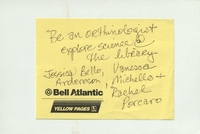 Be an orthinologist
explore science @
the library
Jessica Bello, Vanessa
Anderson, Michelle +
Rachel
Porcaro
Bell Atlantic
YELLOW PAGES